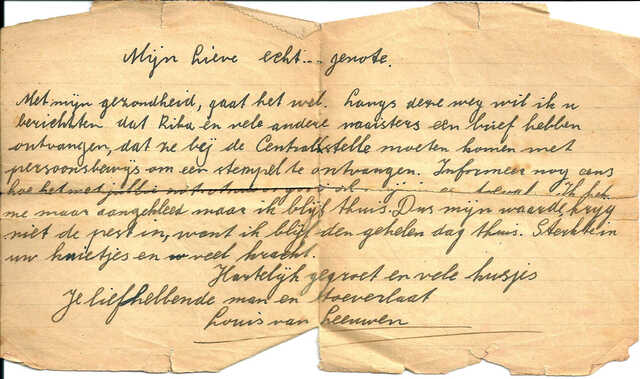 Mijn Lieve echt-- genote.
Met mijn gezondheid, gaat het wel. Langs deze weg wil ik u
berichtten dat Rika en vele andere naaisters een brief hebben
ontvangen, dat ze bij de Centraalstelle moeten komen met
persoonsbewijs om een stempel te ontvangen. Informeer nog eens
hoe het met Ik heb
me maar aangekleed maar ik blijf thuis. Dus mijn waarde, kryg
niet de pest in, want ik blijf den gehelen dag thuis. Sterkte in
uw knietjes en veel kracht.
Hartelijk gegroet en vele kusjes
Je liefhebbende man en toeverlaat
Louis van Leeuwen